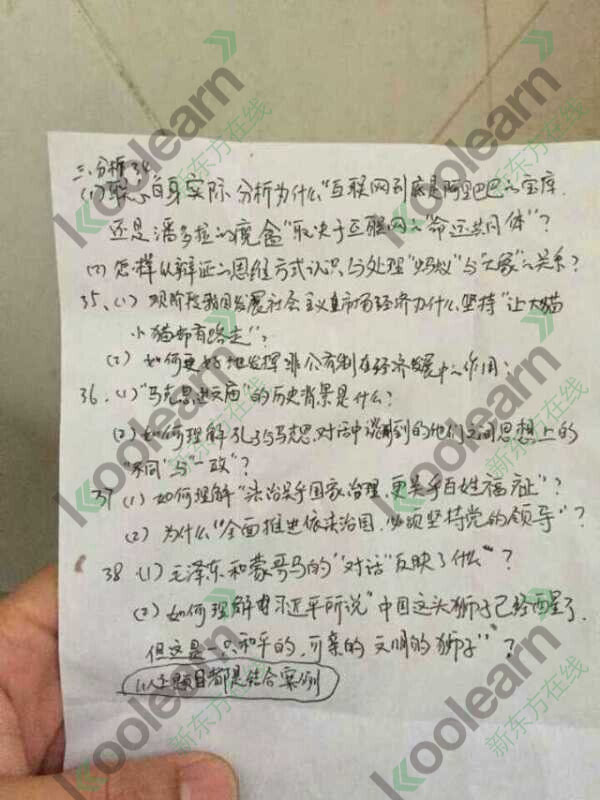 三、分析 34
(1) 联系自身实际 分析为什么"互联网到底是阿里巴巴的宝库
还是潘多拉的魔盒"取决于互联网的"命运共同体"?
(2) 怎样从辩证的思维方式认识与处理"蚂蚁"与"大象"的关系?
35、(1) 现阶段我国发展社会主义市场经济为什么坚持"让大猫
小猫都有路走"?
(2) 如何更好地发挥非公有制在经济发展中的作用?
36.(1)"马克思进文庙"的历史背景是什么?
(2) 如何理解孔子与马克思对话中谈到的他们之间思想上的
"不同"与"一致"?
37 (1) 如何理解"法治关乎国家治理,更关乎百姓福祉"?
(2) 为什么"全面推进依法治国,必须坚持党的领导"?
38 (1) 毛泽东和蒙哥马的"对话"反映了什么?
(2) 如何理解习近平所说"中国这头狮子已经醒了,
但这是一只和平的,可亲的 文明的狮子"?
以上题目都是结合案例
koolearn
新东方在线